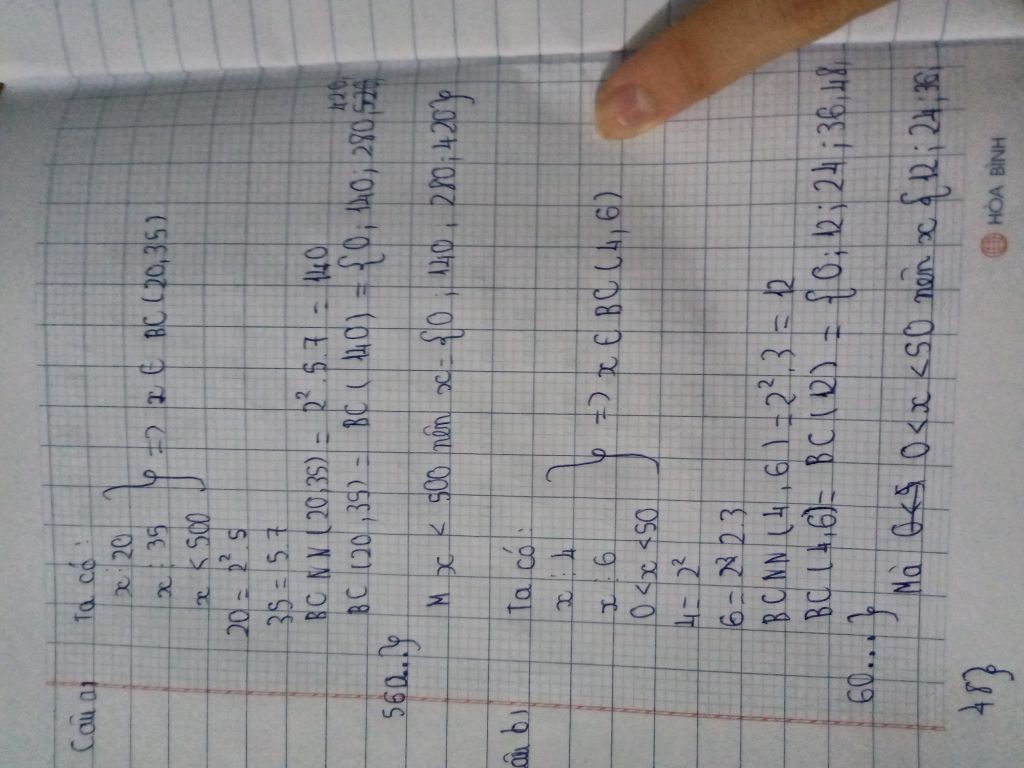 Câu a)
Ta có :
x ⋮ 20
x ⋮ 35 } => x ∈ BC (20,35)
x < 500
20 = 2² . 5
35 = 5 . 7
BCNN (20,35) = 2² . 5 . 7 = 140
BC (20,35) = BC (140) = {0 ; 140 ; 280, 420,
560...}
M x < 500 nên x = {0 ; 140 , 280 ; 420}
Câu b)
Ta có :
x ⋮ 4
x ⋮ 6 } => x ∈ BC (4, 6)
0 < x < 50
4 = 2²
6 = 2.3
BCNN (4, 6) = 2² . 3 = 12
BC (4,6) = BC (12) = {0 ; 12 ; 24 ; 36, 48,
60...}
Mà 0 < x < 50 nên x {12 ; 24 ; 36 ;
48}
HÒA BÌNH